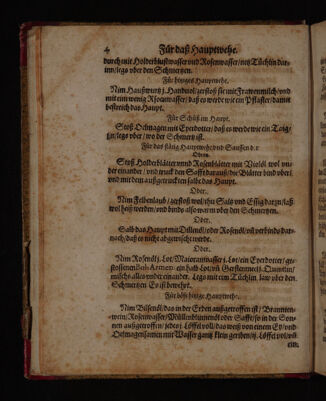 4 Für daß Hauptwehe.
durch mit Holderblustwasser und Rosenwasser/netz Tüchlin dar-
inn/legs vber den Schmertzen.
Für hitziges Hauptwehe.
Nim Haußwurtz j. Handvol/zerstoß sie mit Frawenmilch/und
mit ein wenig Rosenwasser/daß es werde wie ein Pflaster/damit
bestreich das Haupt.
Für Schüß im Haupt.
Stoß Ochnagen mit Eyerdotter/daß es werde wie ein Taig/
legs vber/wo der Schmertz ist.
Für das stätig Hauptwehe und Saussen der
Ohren.
Stoß Holderblätter unnd Rosenblätter mit Violöl wol un-
der einander/und truck den Safft darauß/die Blätter bind vber/
und mit dem außgetruckten salbe das Haupt.
Oder.
Nim Felbenlaub/zerstoß wol/thu Saltz und Essig darzu/laß
wol heiß werden/und binds also warm vber den Schmertzen.
Oder.
Salb das Haupt mit Dillenöl/oder Rosenöl/uñ verbinds dar-
nach/daß es nicht abgewischt werde.
Oder.
Nim Rosenöl j. Lot/Maioranwasser j. Lot/ein Eyerdotter/ge-
stossenen ein halb Lot/uñ Gerstenmeel j. Quintlin/
mischs alles under einander. Legs mit eim Tüchlin/law vber den
Schmertzen Es ist bewehrt.
Für böß hitzige Hauptwehe.
Nim Bilsenöl/das in der Erden außgetroffen ist/Brannten-
wein/Rosenwasser/Müllenblumenöl oder Safft/so in der Son-
nen außgetroffen/jedes j. Löffel voll/das weiß von einem Ey/und
Ochnagensamen mit Wasser gantz klein geriben/ij. Löffel vol/